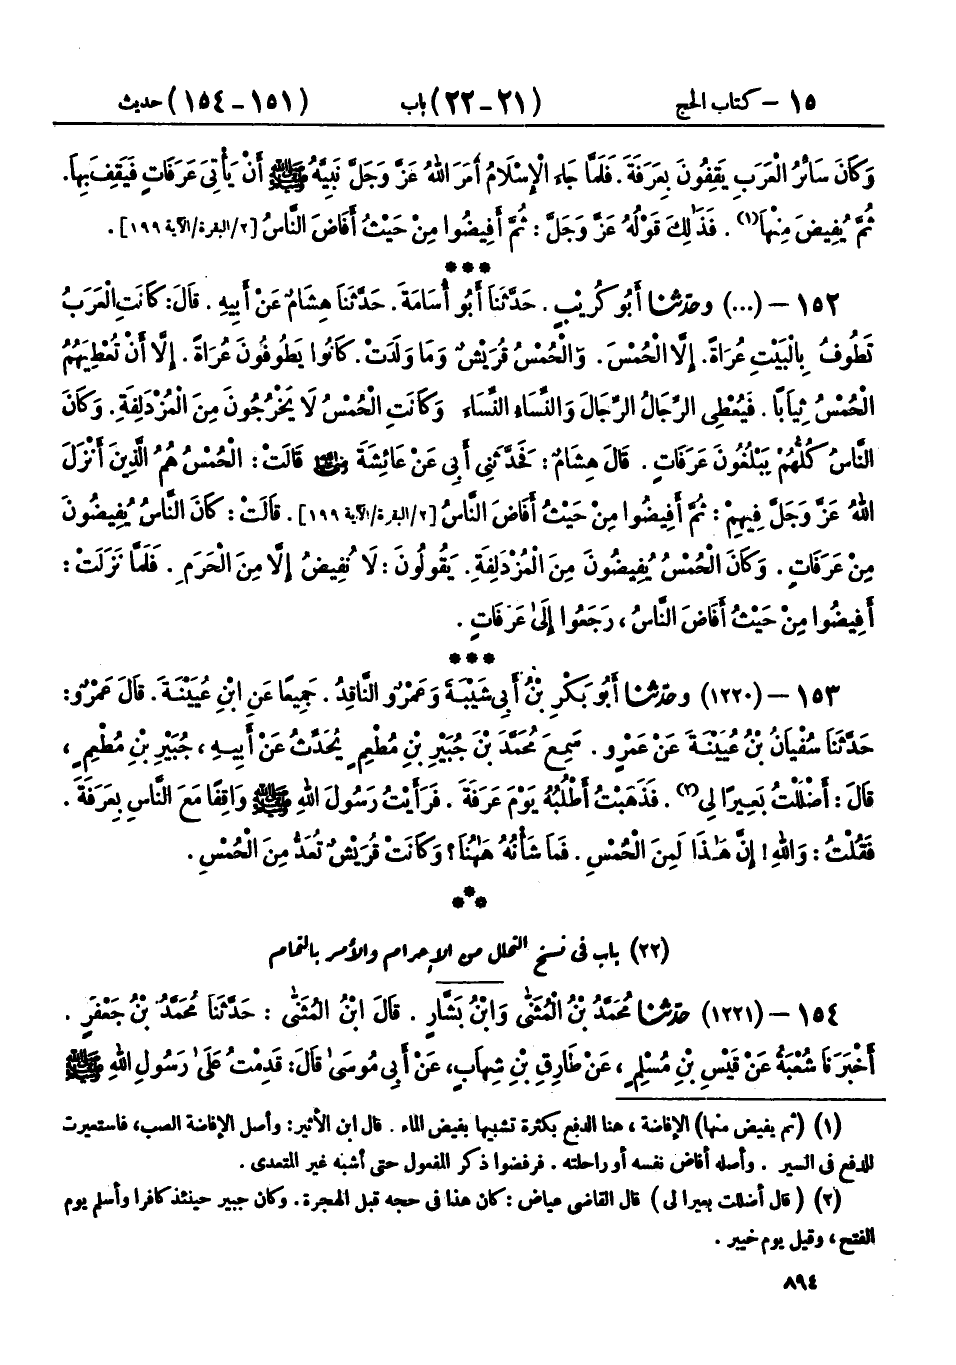 ١٥ – كتاب الحج (٢١-٢٢) باب (١٥١-١٥٤) حديث
وَكَانَ سَائِرُ الْعَرَبِ يَقِفُونَ بِعَرَفَةَ. فَلَمَّا جَاءَ الْإِسْلَامُ أَمَرَ اللهُ عَزَّ وَجَلَّ نَبِيَّهُ ﷺ أَنْ يَأْتِيَ عَرَفَاتٍ فَيَقِفَ بِهَا.
ثُمَّ يُفِيضَ مِنْهَا(١). فَذَٰلِكَ قَوْلُهُ عَزَّ وَجَلَّ: ثُمَّ أَفِيضُوا مِنْ حَيْثُ أَفَاضَ النَّاسُ [٢/البقرة/الآية ١٩٩].
***
١٥٢ – (...) وحَدَّثَنَا أَبُو كُرَيْبٍ. حَدَّثَنَا أَبُو أُسَامَةَ. حَدَّثَنَا هِشَامٌ عَنْ أَبِيهِ. قَالَ: كَانَتِ الْعَرَبُ
تَطُوفُ بِالْبَيْتِ عُرَاةً. إِلَّا الْحُمْسَ. وَالْحُمْسُ قُرَيْشٌ وَمَا وَلَدَتْ. كَانُوا يَطُوفُونَ عُرَاةً. إِلَّا أَنْ تُعْطِيَهُمُ
الْحُمْسُ ثِيَابًا. فَيُعْطِي الرِّجَالُ الرِّجَالَ وَالنِّسَاءُ النِّسَاءَ وَكَانَتِ الْحُمْسُ لَا يَخْرُجُونَ مِنَ الْمُزْدَلِفَةِ. وَكَانَ
النَّاسُ كُلُّهُمْ يَبْلُغُونَ عَرَفَاتٍ. قَالَ هِشَامٌ: فَحَدَّثَنِي أَبِي عَنْ عَائِشَةَ رضي الله عنها قَالَتْ: الْحُمْسُ هُمُ الَّذِينَ أَنْزَلَ
اللهُ عَزَّ وَجَلَّ فِيهِمْ: ثُمَّ أَفِيضُوا مِنْ حَيْثُ أَفَاضَ النَّاسُ [٢/البقرة/الآية ١٩٩]. قَالَتْ: كَانَ النَّاسُ يُفِيضُونَ
مِنْ عَرَفَاتٍ. وَكَانَ الْحُمْسُ يُفِيضُونَ مِنَ الْمُزْدَلِفَةِ. يَقُولُونَ: لَا نُفِيضُ إِلَّا مِنَ الْحَرَمِ. فَلَمَّا نَزَلَتْ:
أَفِيضُوا مِنْ حَيْثُ أَفَاضَ النَّاسُ، رَجَعُوا إِلَىٰ عَرَفَاتٍ.
***
١٥٣ – (١٢٢٠) وحَدَّثَنَا أَبُو بَكْرِ بْنُ أَبِي شَيْبَةَ وَعَمْرٌو النَّاقِدُ. جَمِيعًا عَنِ ابْنِ عُيَيْنَةَ. قَالَ عَمْرٌو:
حَدَّثَنَا سُفْيَانُ بْنُ عُيَيْنَةَ عَنْ عَمْرٍو. سَمِعَ مُحَمَّدَ بْنَ جُبَيْرِ بْنِ مُطْعِمٍ يُحَدِّثُ عَنْ أَبِيهِ، جُبَيْرِ بْنِ مُطْعِمٍ،
قَالَ: أَضْلَلْتُ بَعِيرًا لِي(٢). فَذَهَبْتُ أَطْلُبُهُ يَوْمَ عَرَفَةَ. فَرَأَيْتُ رَسُولَ اللهِ ﷺ وَاقِفًا مَعَ النَّاسِ بِعَرَفَةَ.
فَقُلْتُ: وَاللهِ! إِنَّ هَـٰذَا لَمِنَ الْحُمْسِ. فَمَا شَأْنُهُ هَـٰهُنَا؟ وَكَانَتْ قُرَيْشٌ تُعَدُّ مِنَ الْحُمْسِ.
***
(٢٢) باب فى نسخ التحلل من الإحرام والأمر بالتمام
١٥٤ – (١٢٢١) حَدَّثَنَا مُحَمَّدُ بْنُ الْمُثَنَّىٰ وَابْنُ بَشَّارٍ. قَالَ ابْنُ الْمُثَنَّىٰ: حَدَّثَنَا مُحَمَّدُ بْنُ جَعْفَرٍ.
أَخْبَرَنَا شُعْبَةُ عَنْ قَيْسِ بْنِ مُسْلِمٍ، عَنْ طَارِقِ بْنِ شِهَابٍ، عَنْ أَبِي مُوسَىٰ قَالَ: قَدِمْتُ عَلَىٰ رَسُولِ اللهِ ﷺ
(١) (ثم يفيض منها) الإفاضة، هنا الدفع بكثرة تشبيها بفيض الماء. قال ابن الأثير: وأصل الإفاضة الصب، فاستعيرت
للدفع فى السير. وأصله أفاض نفسه أو راحلته. فرفضوا ذكر المفعول حتى أشبه غير المتعدى.
(٢) (قال أضللت بعيرا لى) قال القاضى عياض: كان هذا فى حجه قبل الهجرة. وكان جبير حينئذ كافرا وأسلم يوم
الفتح، وقيل يوم خيبر.
٨٩٤